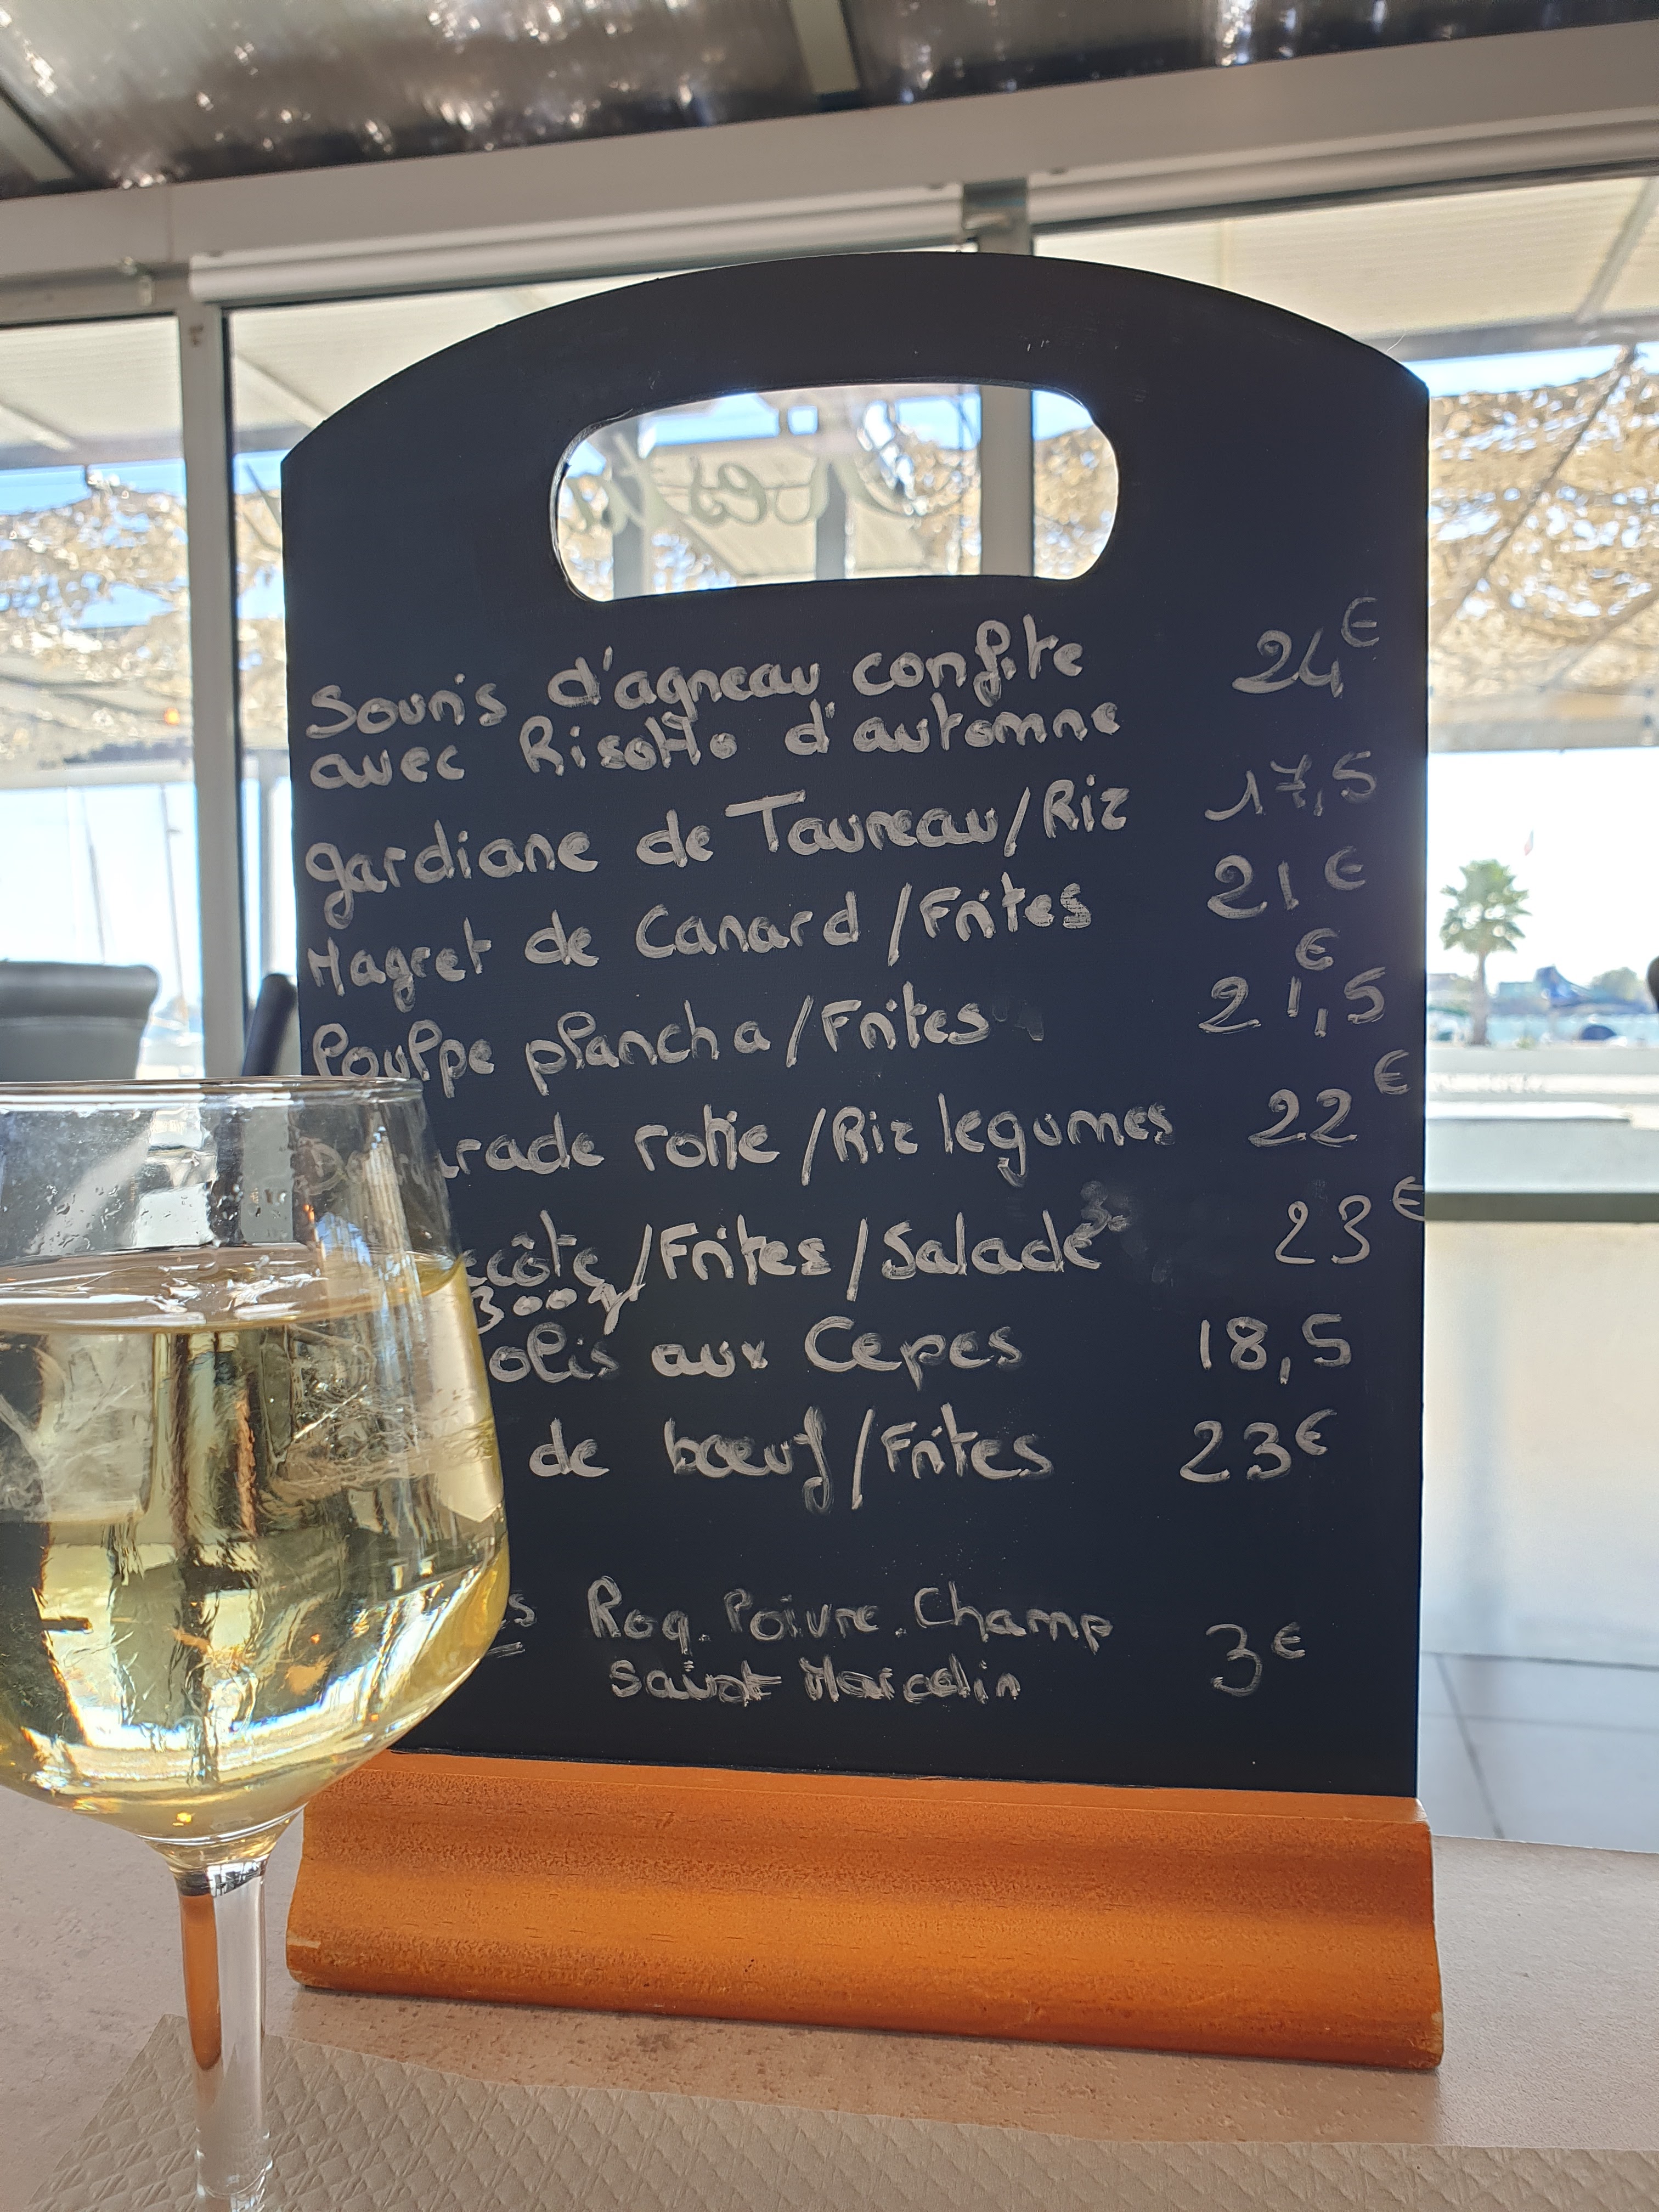 Souris d'agneau confite 24€
avec Risotto d'automne
gardiane de Taureau/Riz 17,5
Magret de Canard/Frites 21€
Poulpe plancha/Frites 21,5€
rade rotie/Riz legumes 22€
côte/Frites/Salade 23€
300gr
olis aux Cepes 18,5
de bœuf/Frites 23€
Roq. Poivre. Champ 3€
Saint Marcelin